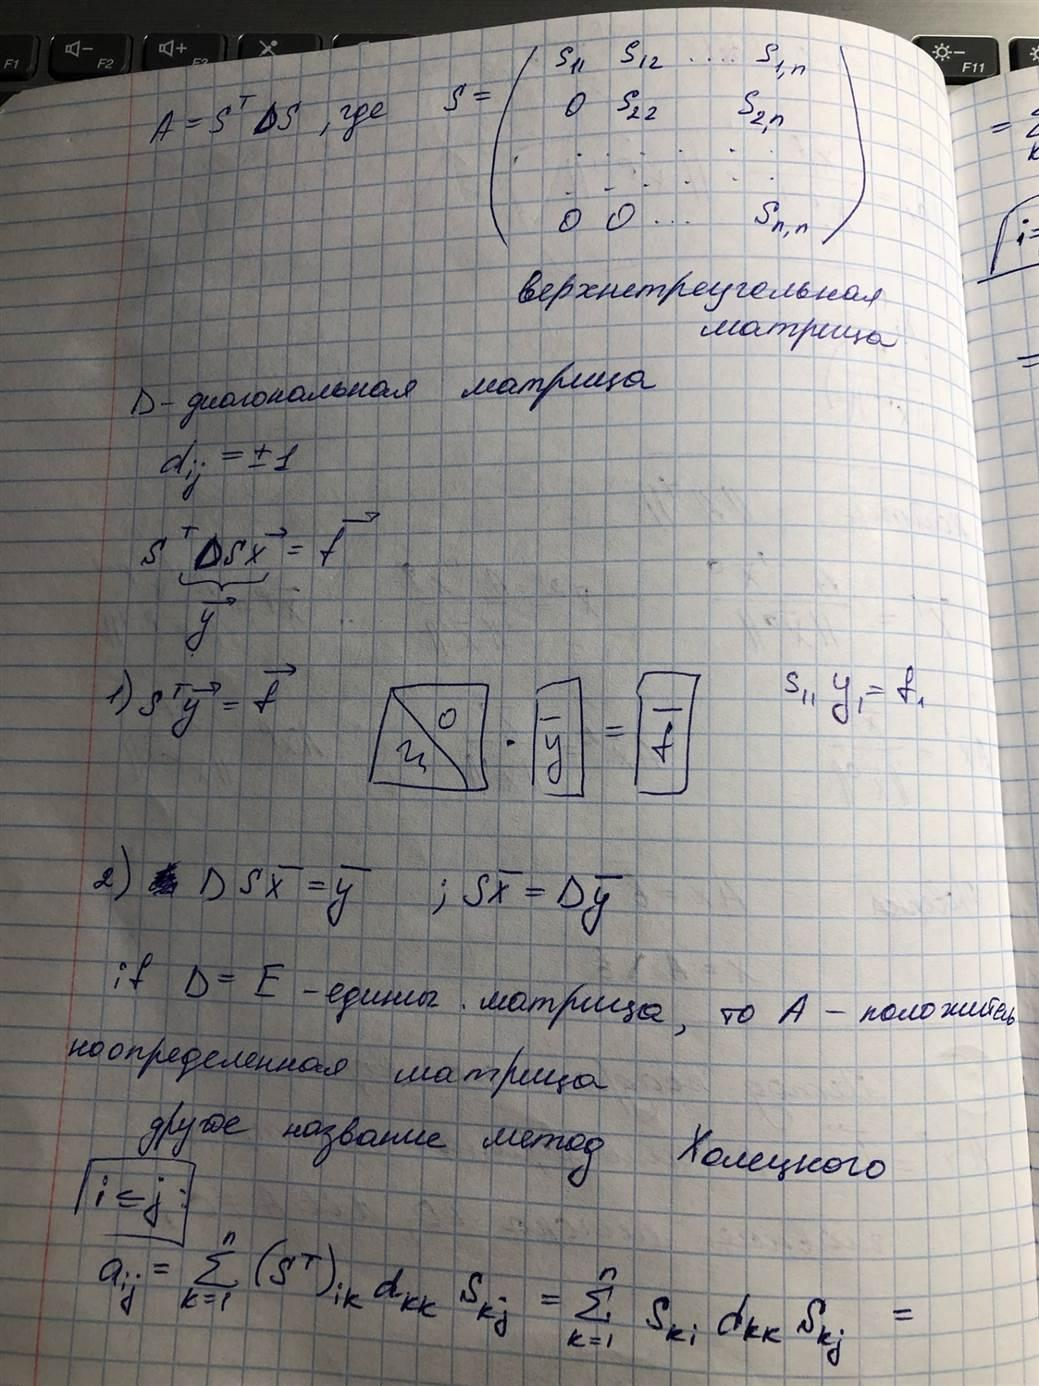 F1 F2 F3 F11
A = S^T D S, где S = ( S₁₁ S₁₂ .... S₁,ₙ
0 S₂₂ S₂,ₙ
. . . . . .
. . . . . .
0 0 ... Sₙ,ₙ )
верхнетреугольная
матрица
D - диагональная матрица
d_ij = ±1
S^T D S x⃗ = f⃗
y⃗
1) S^T y⃗ = f⃗ 0 · y̅ = f̅ S₁₁ y₁ = f₁
2) D S x̅ = y̅ ; S x̅ = D y̅
if D = E - единич. матрица, то A - положитель
ноопределенная матрица
другое название метод Холецкого
i ≤ j :
a_ij = ∑_{k=1}^{n} (S^T)_ik d_kk S_kj = ∑_{k=1}^{n} S_ki d_kk S_kj =